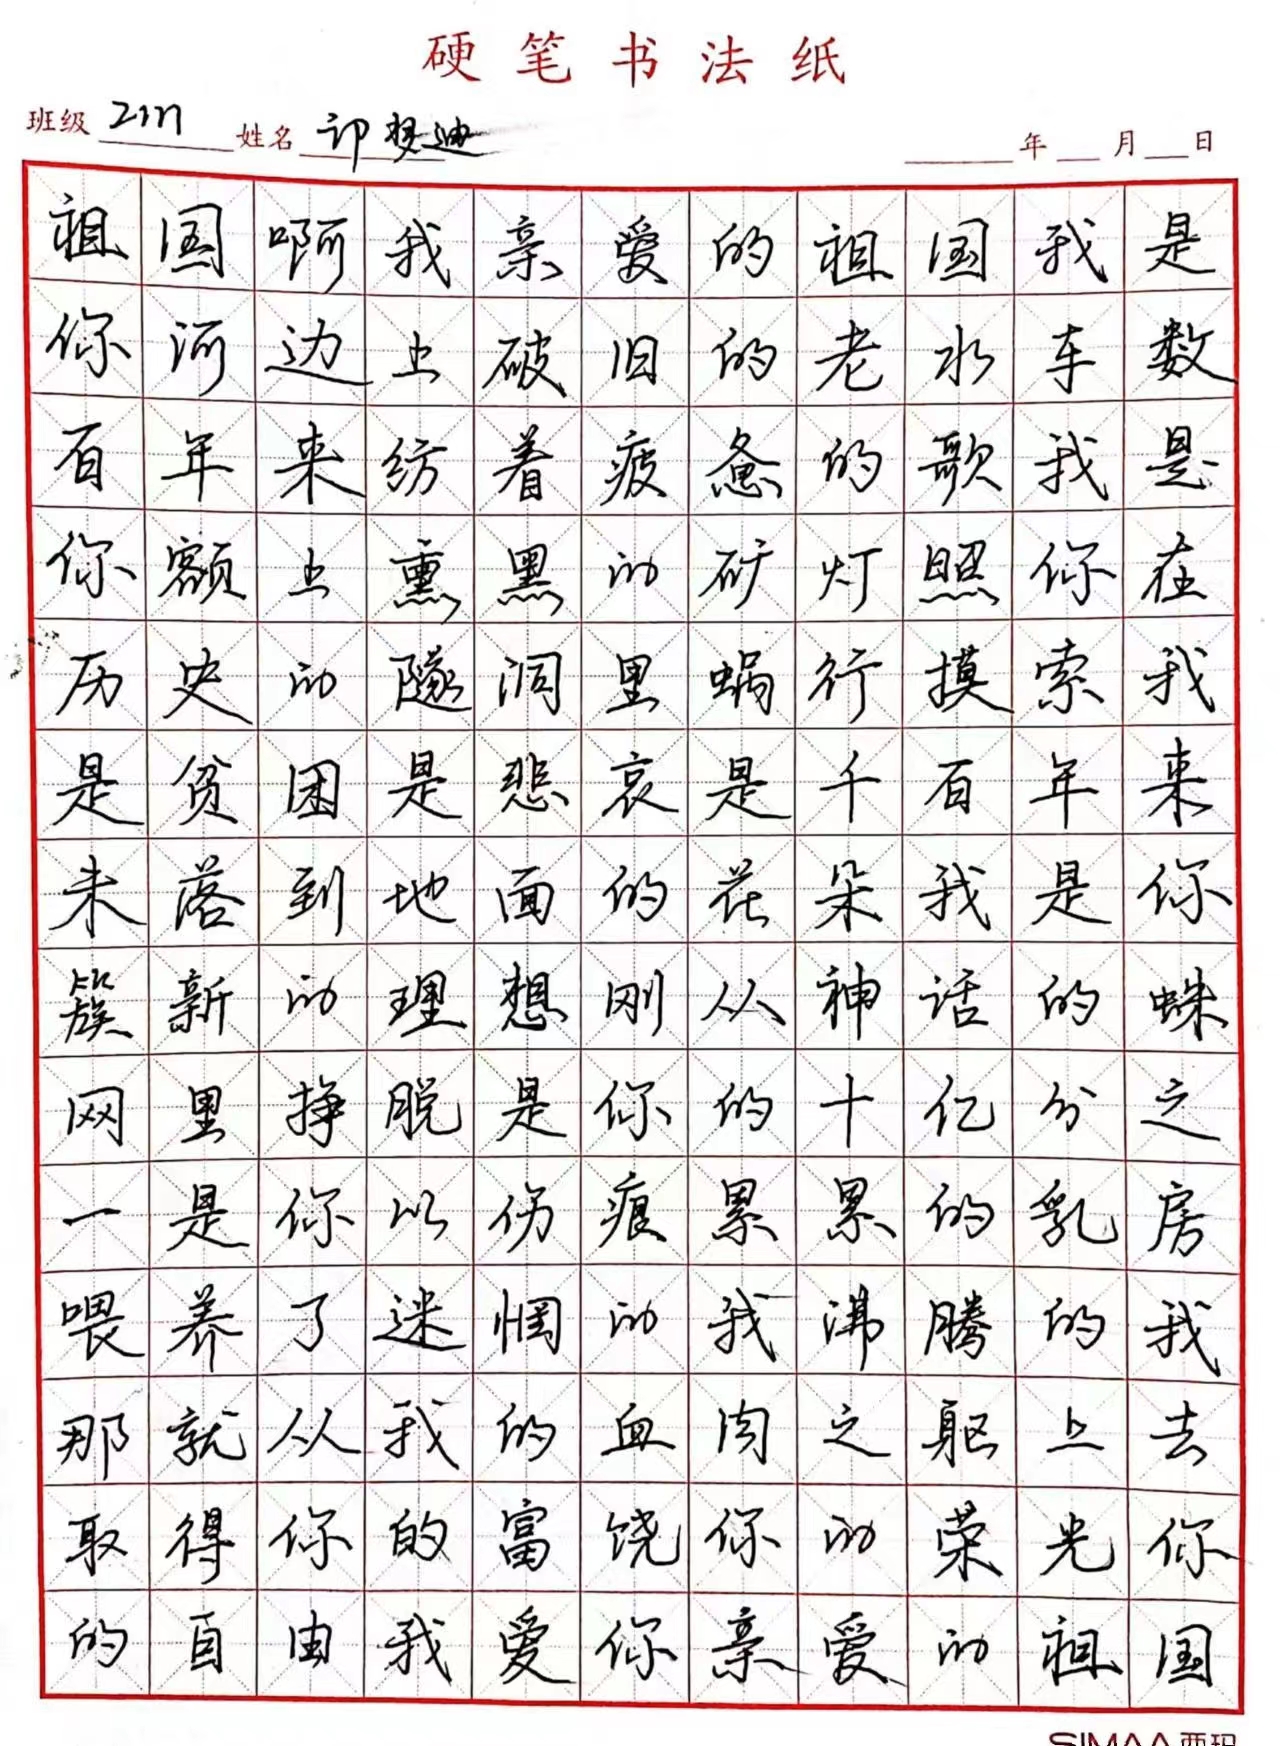 硬笔书法纸
班级 2111 姓名 印梦迪 年 月 日
祖国啊我亲爱的祖国我是
你河边上破旧的老水车数
百年来纺着疲惫的歌我是
你额上熏黑的矿灯照你在
历史的隧洞里蜗行摸索我
是贫困是悲哀是千百年来
未落到地面的花朵我是你
簇新的理想刚从神话的蛛
网里挣脱是你的十亿分之
一是你以伤痕累累的乳房
喂养了迷惘的我沸腾的我
那就从我的血肉之躯上去
取得你的富饶你的荣光你
的自由我爱你亲爱的祖国
SIMAA西玛